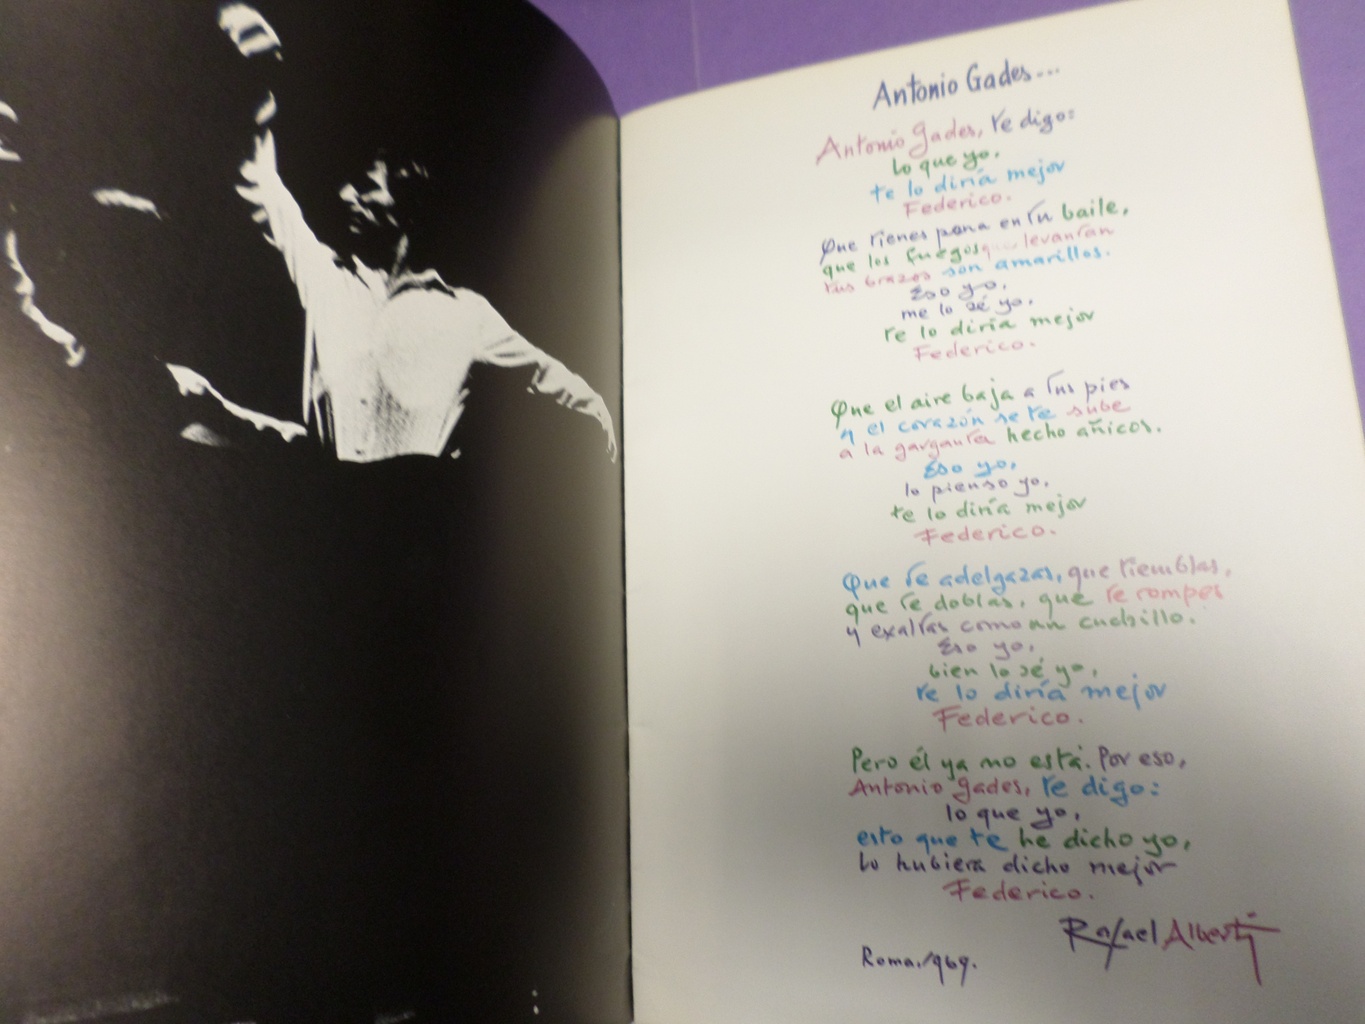 Antonio Gades...
Antonio Gades, te digo:
lo que yo.
te lo diría mejor
Federico.
Que tienes pena en tu baile,
que los fuegos que levantan
tus brazos son amarillos.
Eso yo,
me lo sé yo,
te lo diría mejor
Federico.
Que el aire baja a tus pies
y el corazón se te sube
a la garganta hecho añicos.
Eso yo,
lo pienso yo,
te lo diría mejor
Federico.
Que te adelgazas, que tiemblas,
que te doblas, que te rompes
y exaltas como un cuchillo.
Eso yo,
bien lo sé yo,
te lo diría mejor
Federico.
Pero él ya no está. Por eso,
Antonio Gades, te digo:
lo que yo,
esto que te he dicho yo,
lo hubiera dicho mejor
Federico.
Rafael Alberti
Roma, 1969.